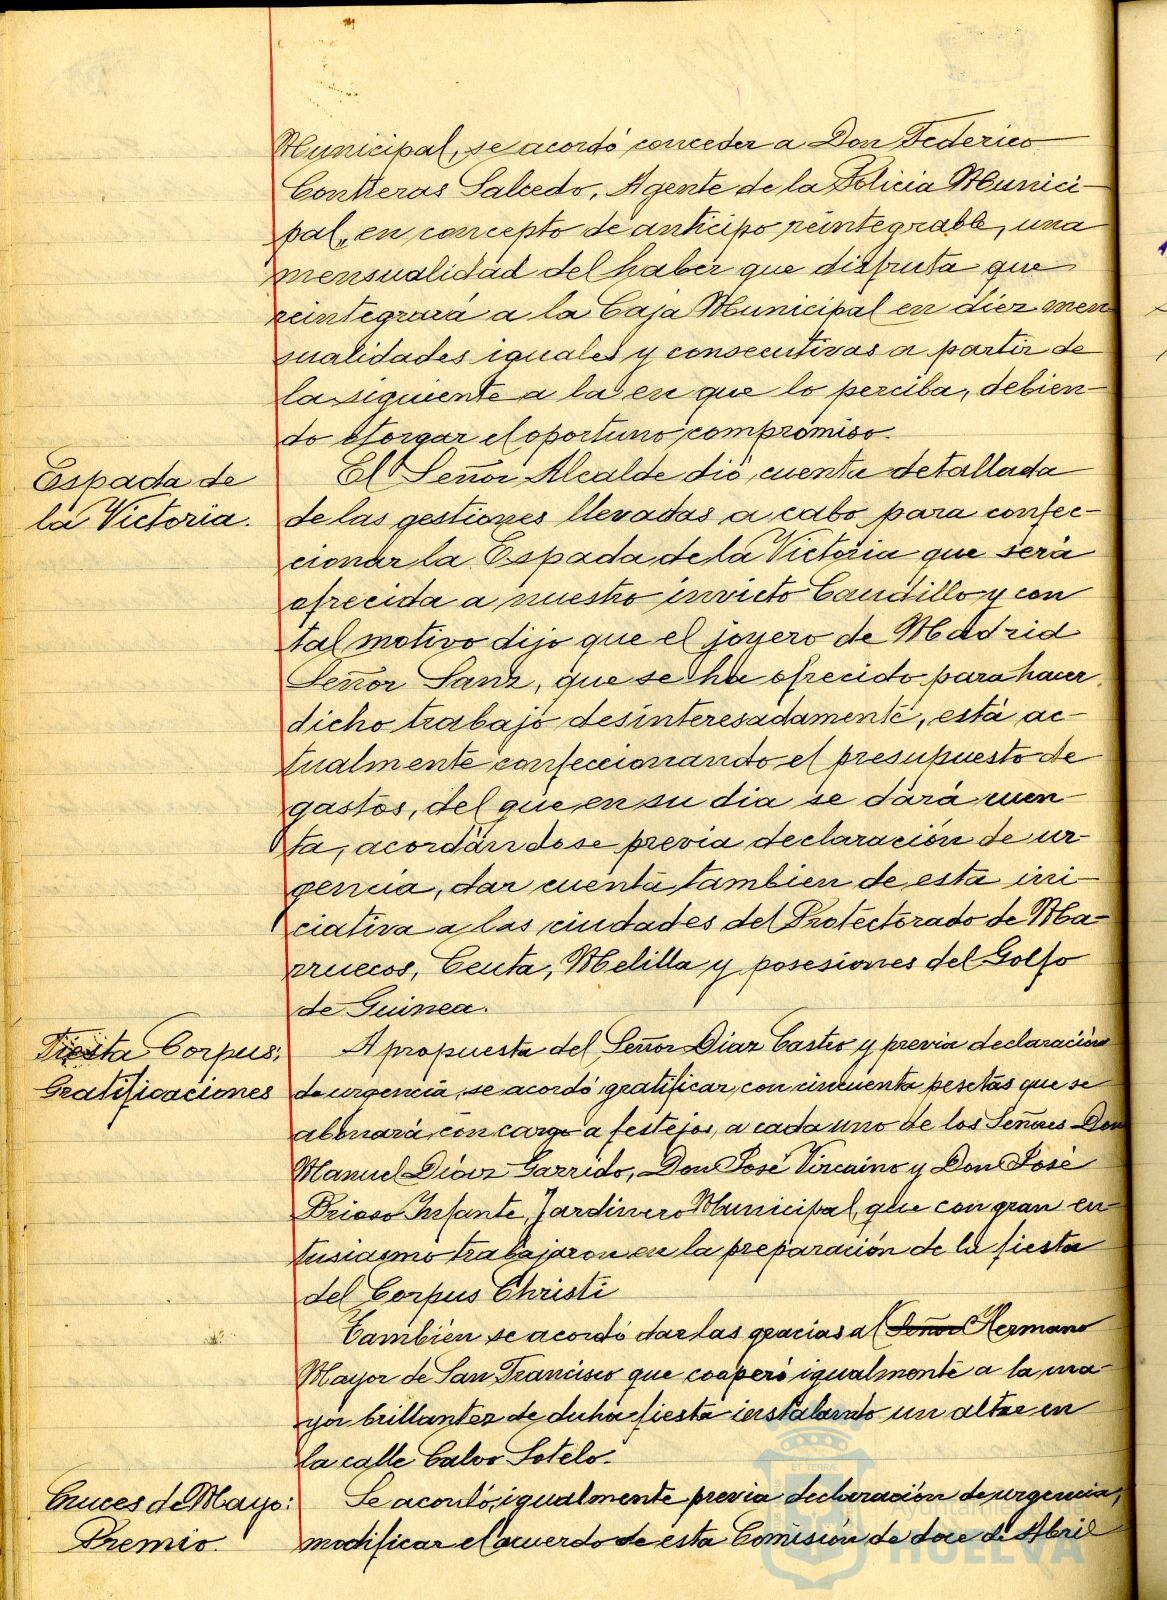 Municipal, se acordó conceder a Don Federico
Contreras Salcedo, Agente de la Policia Munici-
pal, en concepto de anticipo reintegrable, una
mensualidad del haber que disfruta que
reintegrará a la Caja Municipal en diez men
sualidades iguales y consecutivas a partir de
la siguiente a la en que lo perciba, debien-
do otorgar el oportuno compromiso.
Espada de
la Victoria.
El Señor Alcalde dió cuenta detallada
de las gestiones llevadas a cabo para confec-
cionar la Espada de la Victoria que será
ofrecida a nuestro invicto Caudillo y con
tal motivo dijo que el joyero de Madrid
Señor Sanz, que se ha ofrecido para hacer
dicho trabajo desinteresadamente, está ac-
tualmente confeccionando el presupuesto de
gastos, del que en su dia se dará cuen-
ta, acordándose previa declaración de ur-
gencia, dar cuenta tambien de esta ini-
ciativa a las ciudades del Protectorado de Ma-
rruecos, Ceuta, Melilla y posesiones del Golfo
de Guinea.
Fiesta Corpus:
Gratificaciones
A propuesta del Señor Diaz Castro y previa declaración
de urgencia, se acordó gratificar con cincuenta pesetas que se
abonará con cargo a festejos, a cada uno de los Señores Don
Manuel Diaz Garrido, Don José Vizcaino y Don José
Brioso Infante, Jardinero Municipal, que con gran en-
tusiasmo trabajaron en la preparación de la fiesta
del Corpus Christi
Tambien se acordó dar las gracias al Señor Hermano
Mayor de San Francisco que cooperó igualmente a la ma-
yor brillantez de dicha fiesta instalando un altar en
la calle Calvo Sotelo.
Cruces de Mayo:
Premio.
Se acordó, igualmente previa declaración de urgencia,
modificar el acuerdo de esta Comisión de doce de Abril
Ayuntamiento
HUELVA